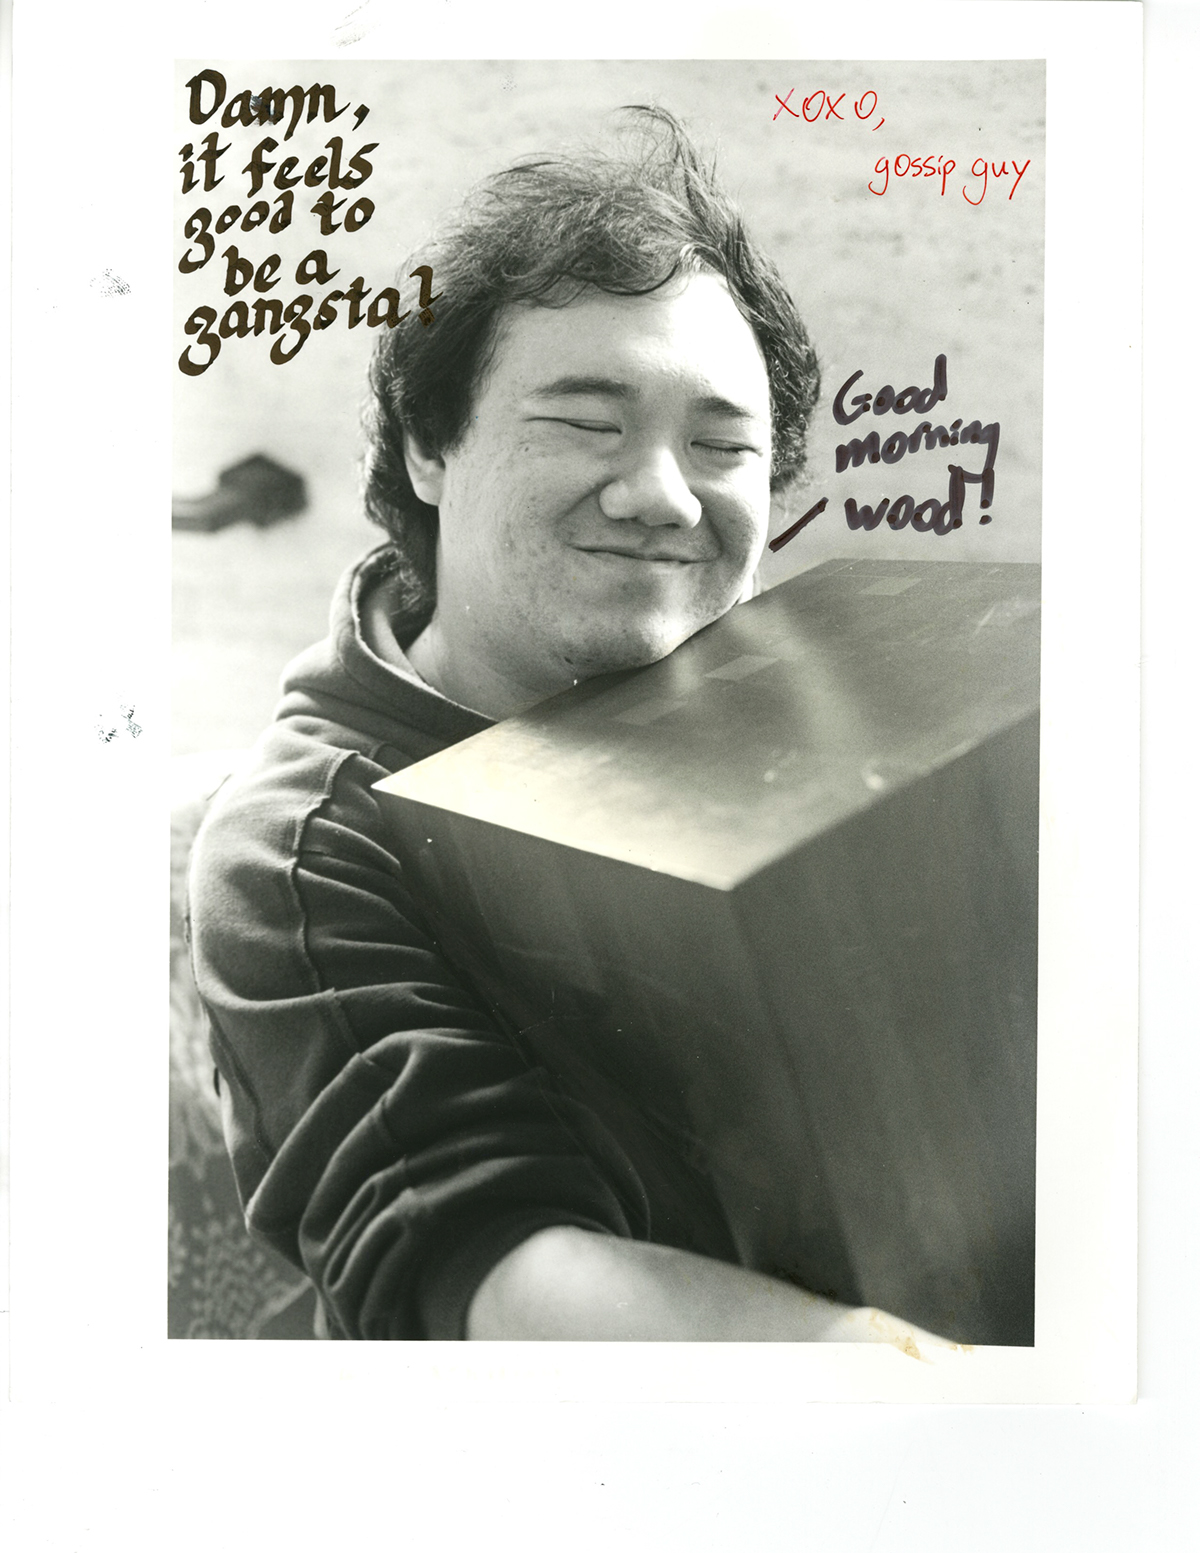 Damn,
it feels
good to
be a
gangsta!
XOXO,
gossip guy
Good
morning
wood!